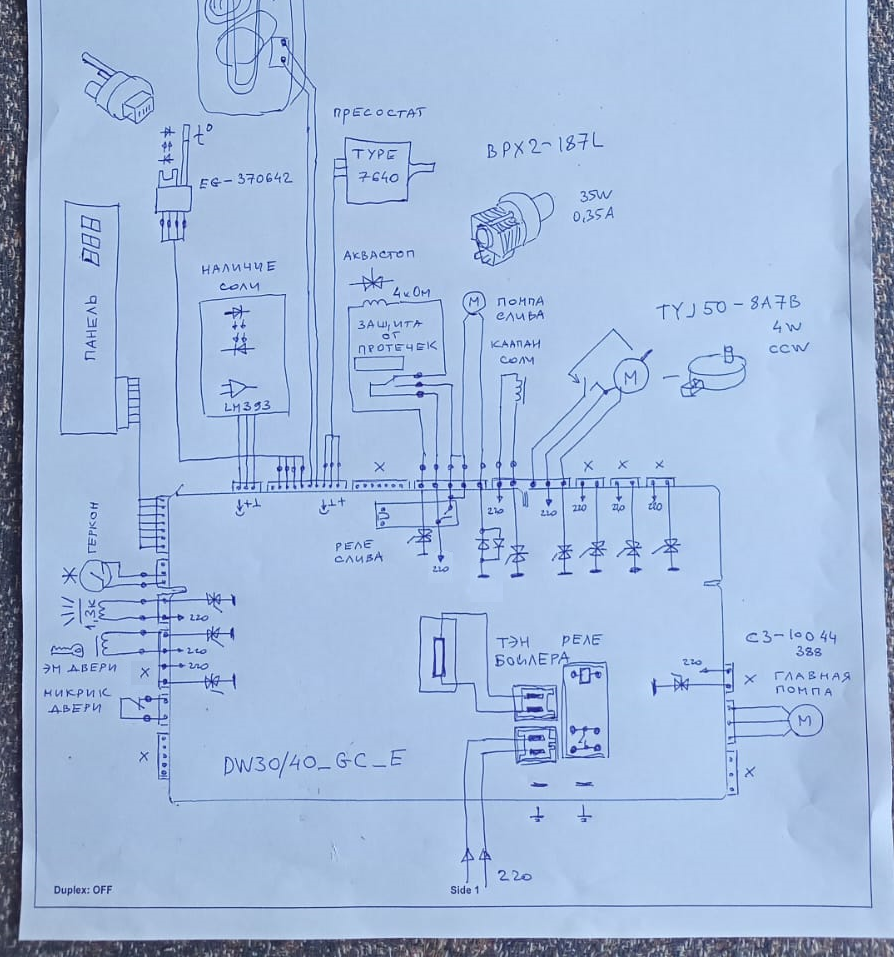 ПРЕСОСТАТ
TYPE
7640
t°
EG-370642
BPX2-187L
35W
0,35A
НАЛИЧИЕ
СОЛИ
LM393
АКВАСТОП
4кОм
ЗАЩИТА
ОТ
ПРОТЕЧЕК
M
ПОМПА
СЛИВА
КЛАПАН
СОЛИ
TYJ50-8A7B
4W
CCW
M
ПАНЕЛЬ
X
X
X
X
+
+
220
220
220
220
220
220
РЕЛЕ
СЛИВА
ГЕРКОН
1,3К
220
220
220
ЭМ ДВЕРИ
X
МИКРИК
ДВЕРИ
X
ТЭН
БОЙЛЕРА
РЕЛЕ
C3-10044
388
220
X
ГЛАВНАЯ
ПОМПА
M
X
DW30/40_GC_E
220
Duplex: OFF
Side 1